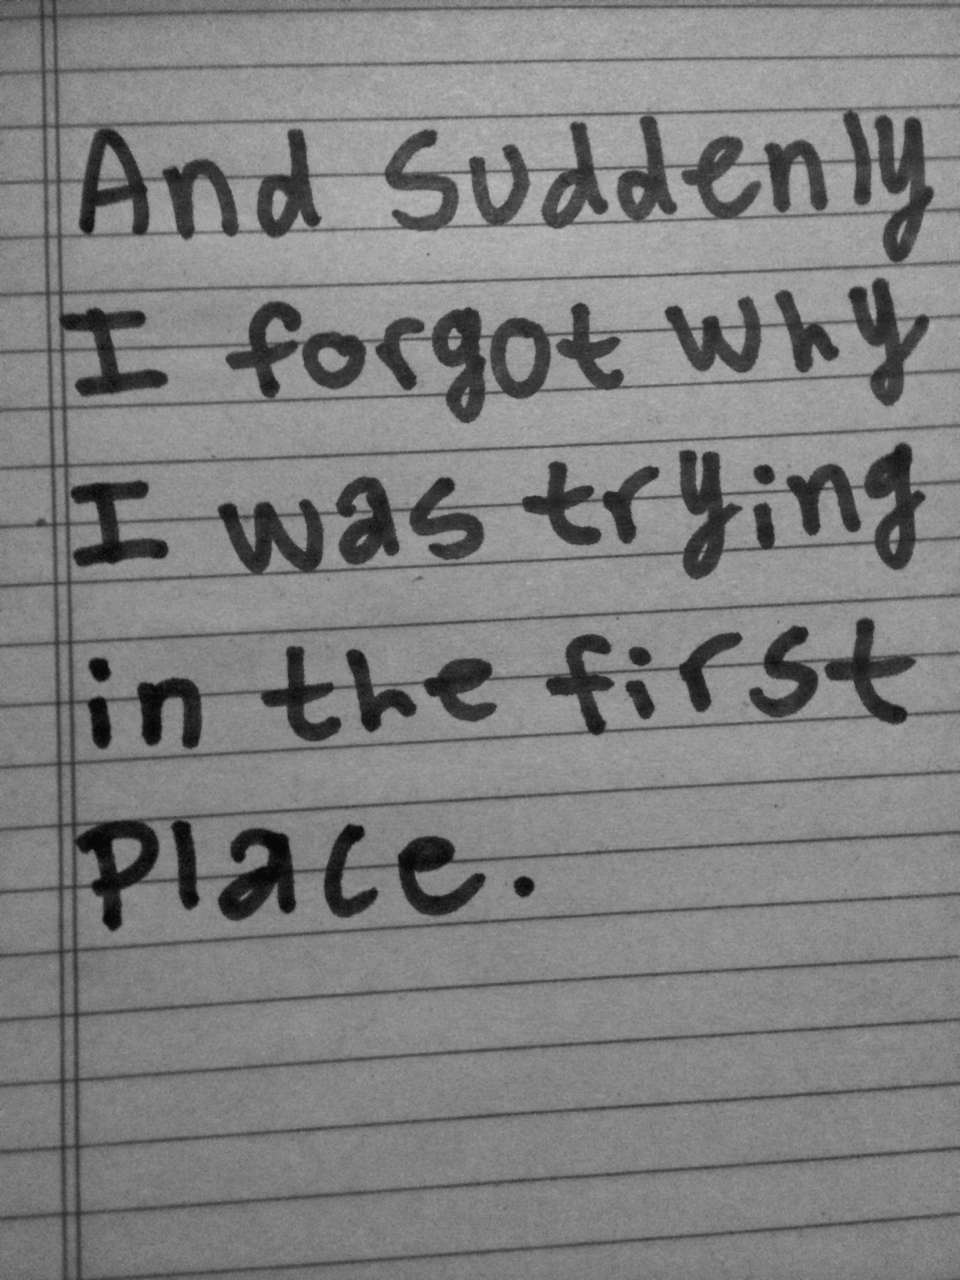 And Suddenly
I forgot why
I was trying
in the first
Place.